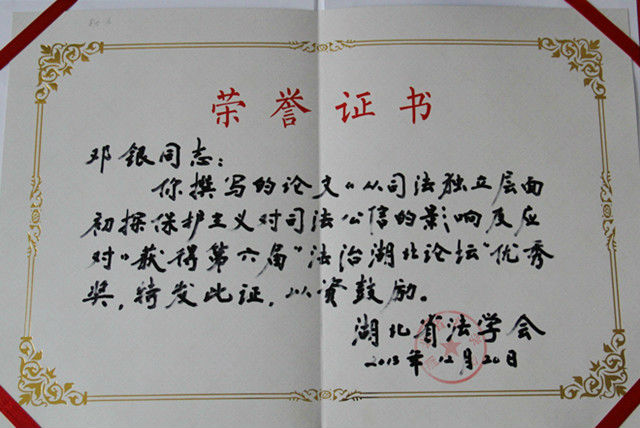 荣誉证书
邓银同志:
你撰写的论文“从司法独立层面
初探保护主义对司法公信的影响及应
对”获得第六届“法治湖北论坛”优秀
奖,特发此证,以资鼓励。
湖北省法学会
2013年12月20日